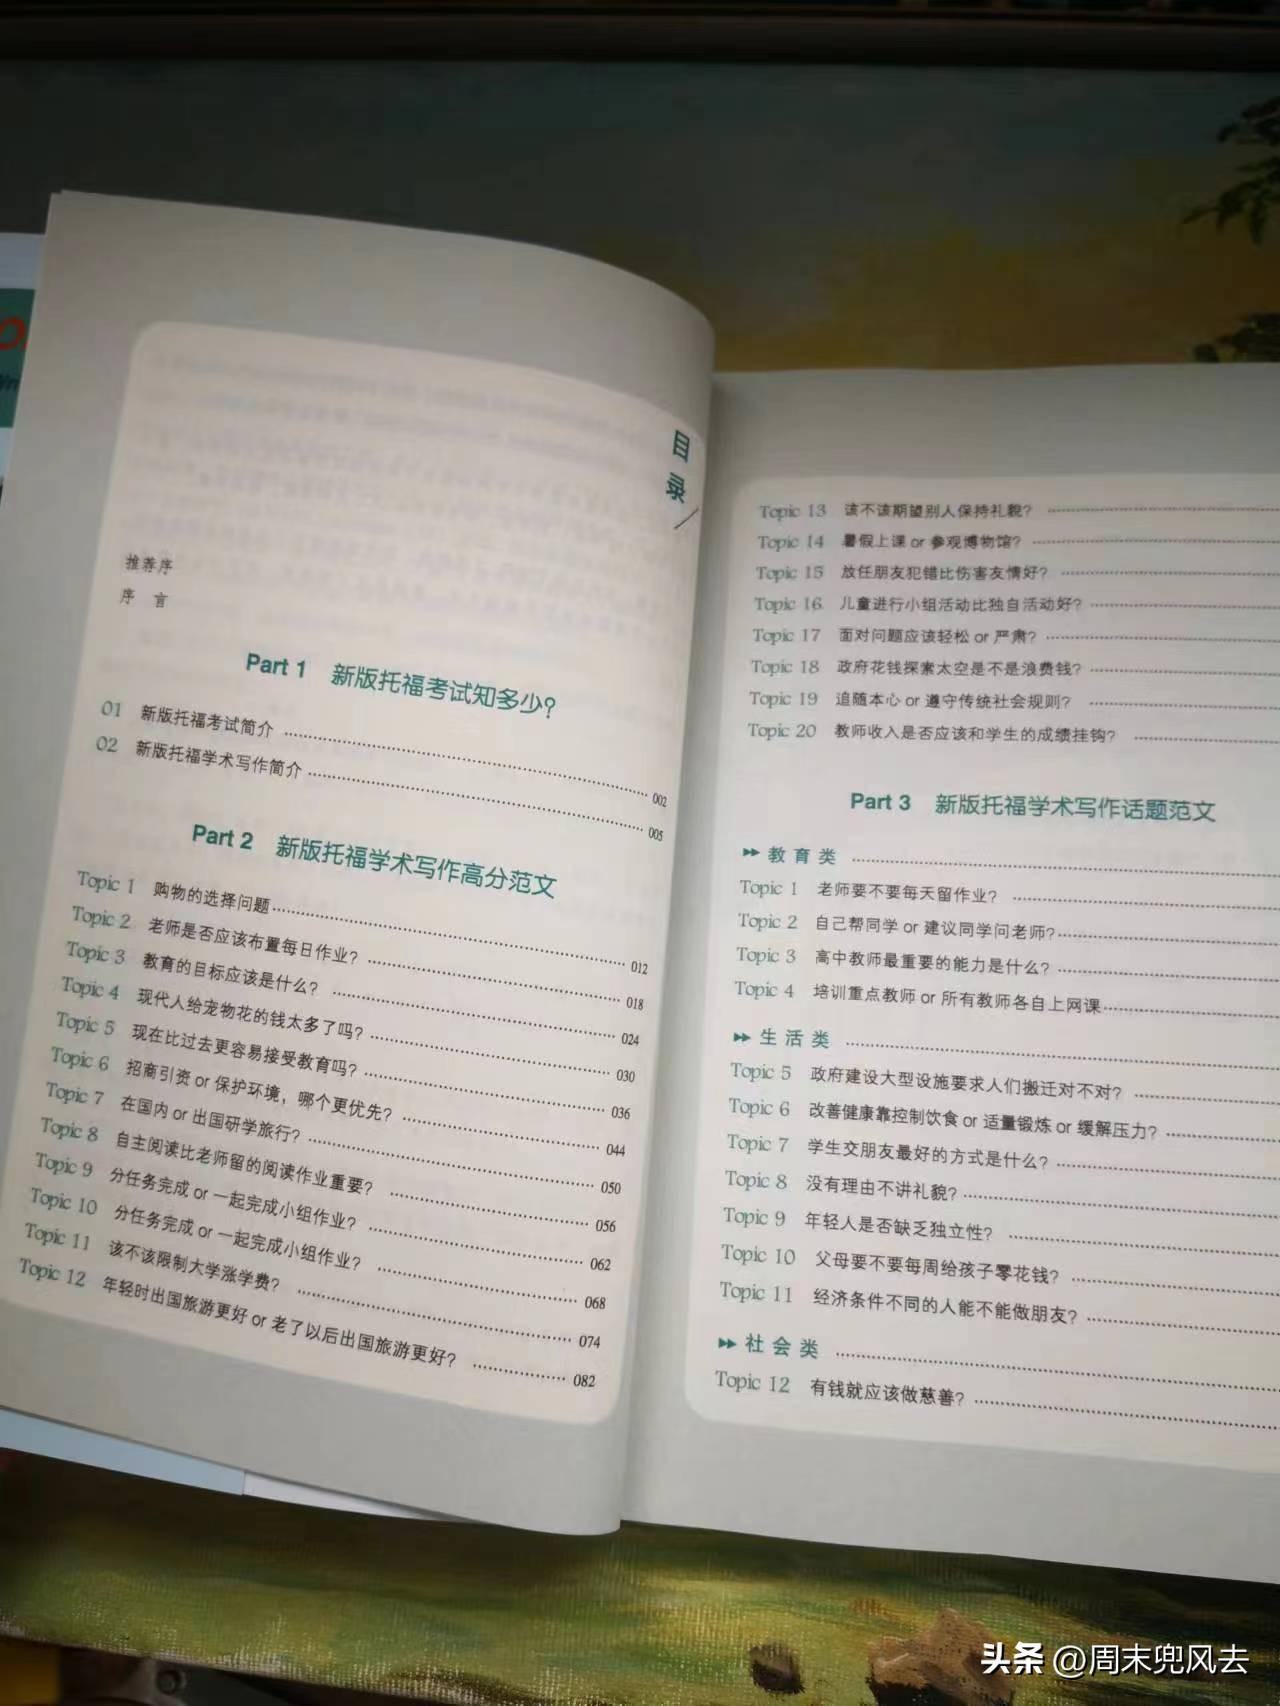 目录
推荐序
序 言
Part 1 新版托福考试知多少？
01 新版托福考试简介 002
02 新版托福学术写作简介 005
Part 2 新版托福学术写作高分范文
Topic 1 购物的选择问题 012
Topic 2 老师是否应该布置每日作业？ 018
Topic 3 教育的目标应该是什么？ 024
Topic 4 现代人给宠物花的钱太多了吗？ 030
Topic 5 现在比过去更容易接受教育吗？ 036
Topic 6 招商引资 or 保护环境，哪个更优先？ 044
Topic 7 在国内 or 出国研学旅行？ 050
Topic 8 自主阅读比老师留的阅读作业重要？ 056
Topic 9 分任务完成 or 一起完成小组作业？ 062
Topic 10 分任务完成 or 一起完成小组作业？ 068
Topic 11 该不该限制大学涨学费？ 074
Topic 12 年轻时出国旅游更好 or 老了以后出国旅游更好？ 082
Topic 13 该不该期望别人保持礼貌？
Topic 14 暑假上课 or 参观博物馆？
Topic 15 放任朋友犯错比伤害友情好？
Topic 16 儿童进行小组活动比独自活动好？
Topic 17 面对问题应该轻松 or 严肃？
Topic 18 政府花钱探索太空是不是浪费钱？
Topic 19 追随本心 or 遵守传统社会规则？
Topic 20 教师收入是否应该和学生的成绩挂钩？
Part 3 新版托福学术写作话题范文
教育类
Topic 1 老师要不要每天留作业？
Topic 2 自己帮同学 or 建议同学问老师？
Topic 3 高中教师最重要的能力是什么？
Topic 4 培训重点教师 or 所有教师各自上网课
生活类
Topic 5 政府建设大型设施要求人们搬迁对不对？
Topic 6 改善健康靠控制饮食 or 适量锻炼 or 缓解压力？
Topic 7 学生交朋友最好的方式是什么？
Topic 8 没有理由不讲礼貌？
Topic 9 年轻人是否缺乏独立性？
Topic 10 父母要不要每周给孩子零花钱？
Topic 11 经济条件不同的人能不能做朋友？
社会类
Topic 12 有钱就应该做慈善？
头条 @周末兜风去